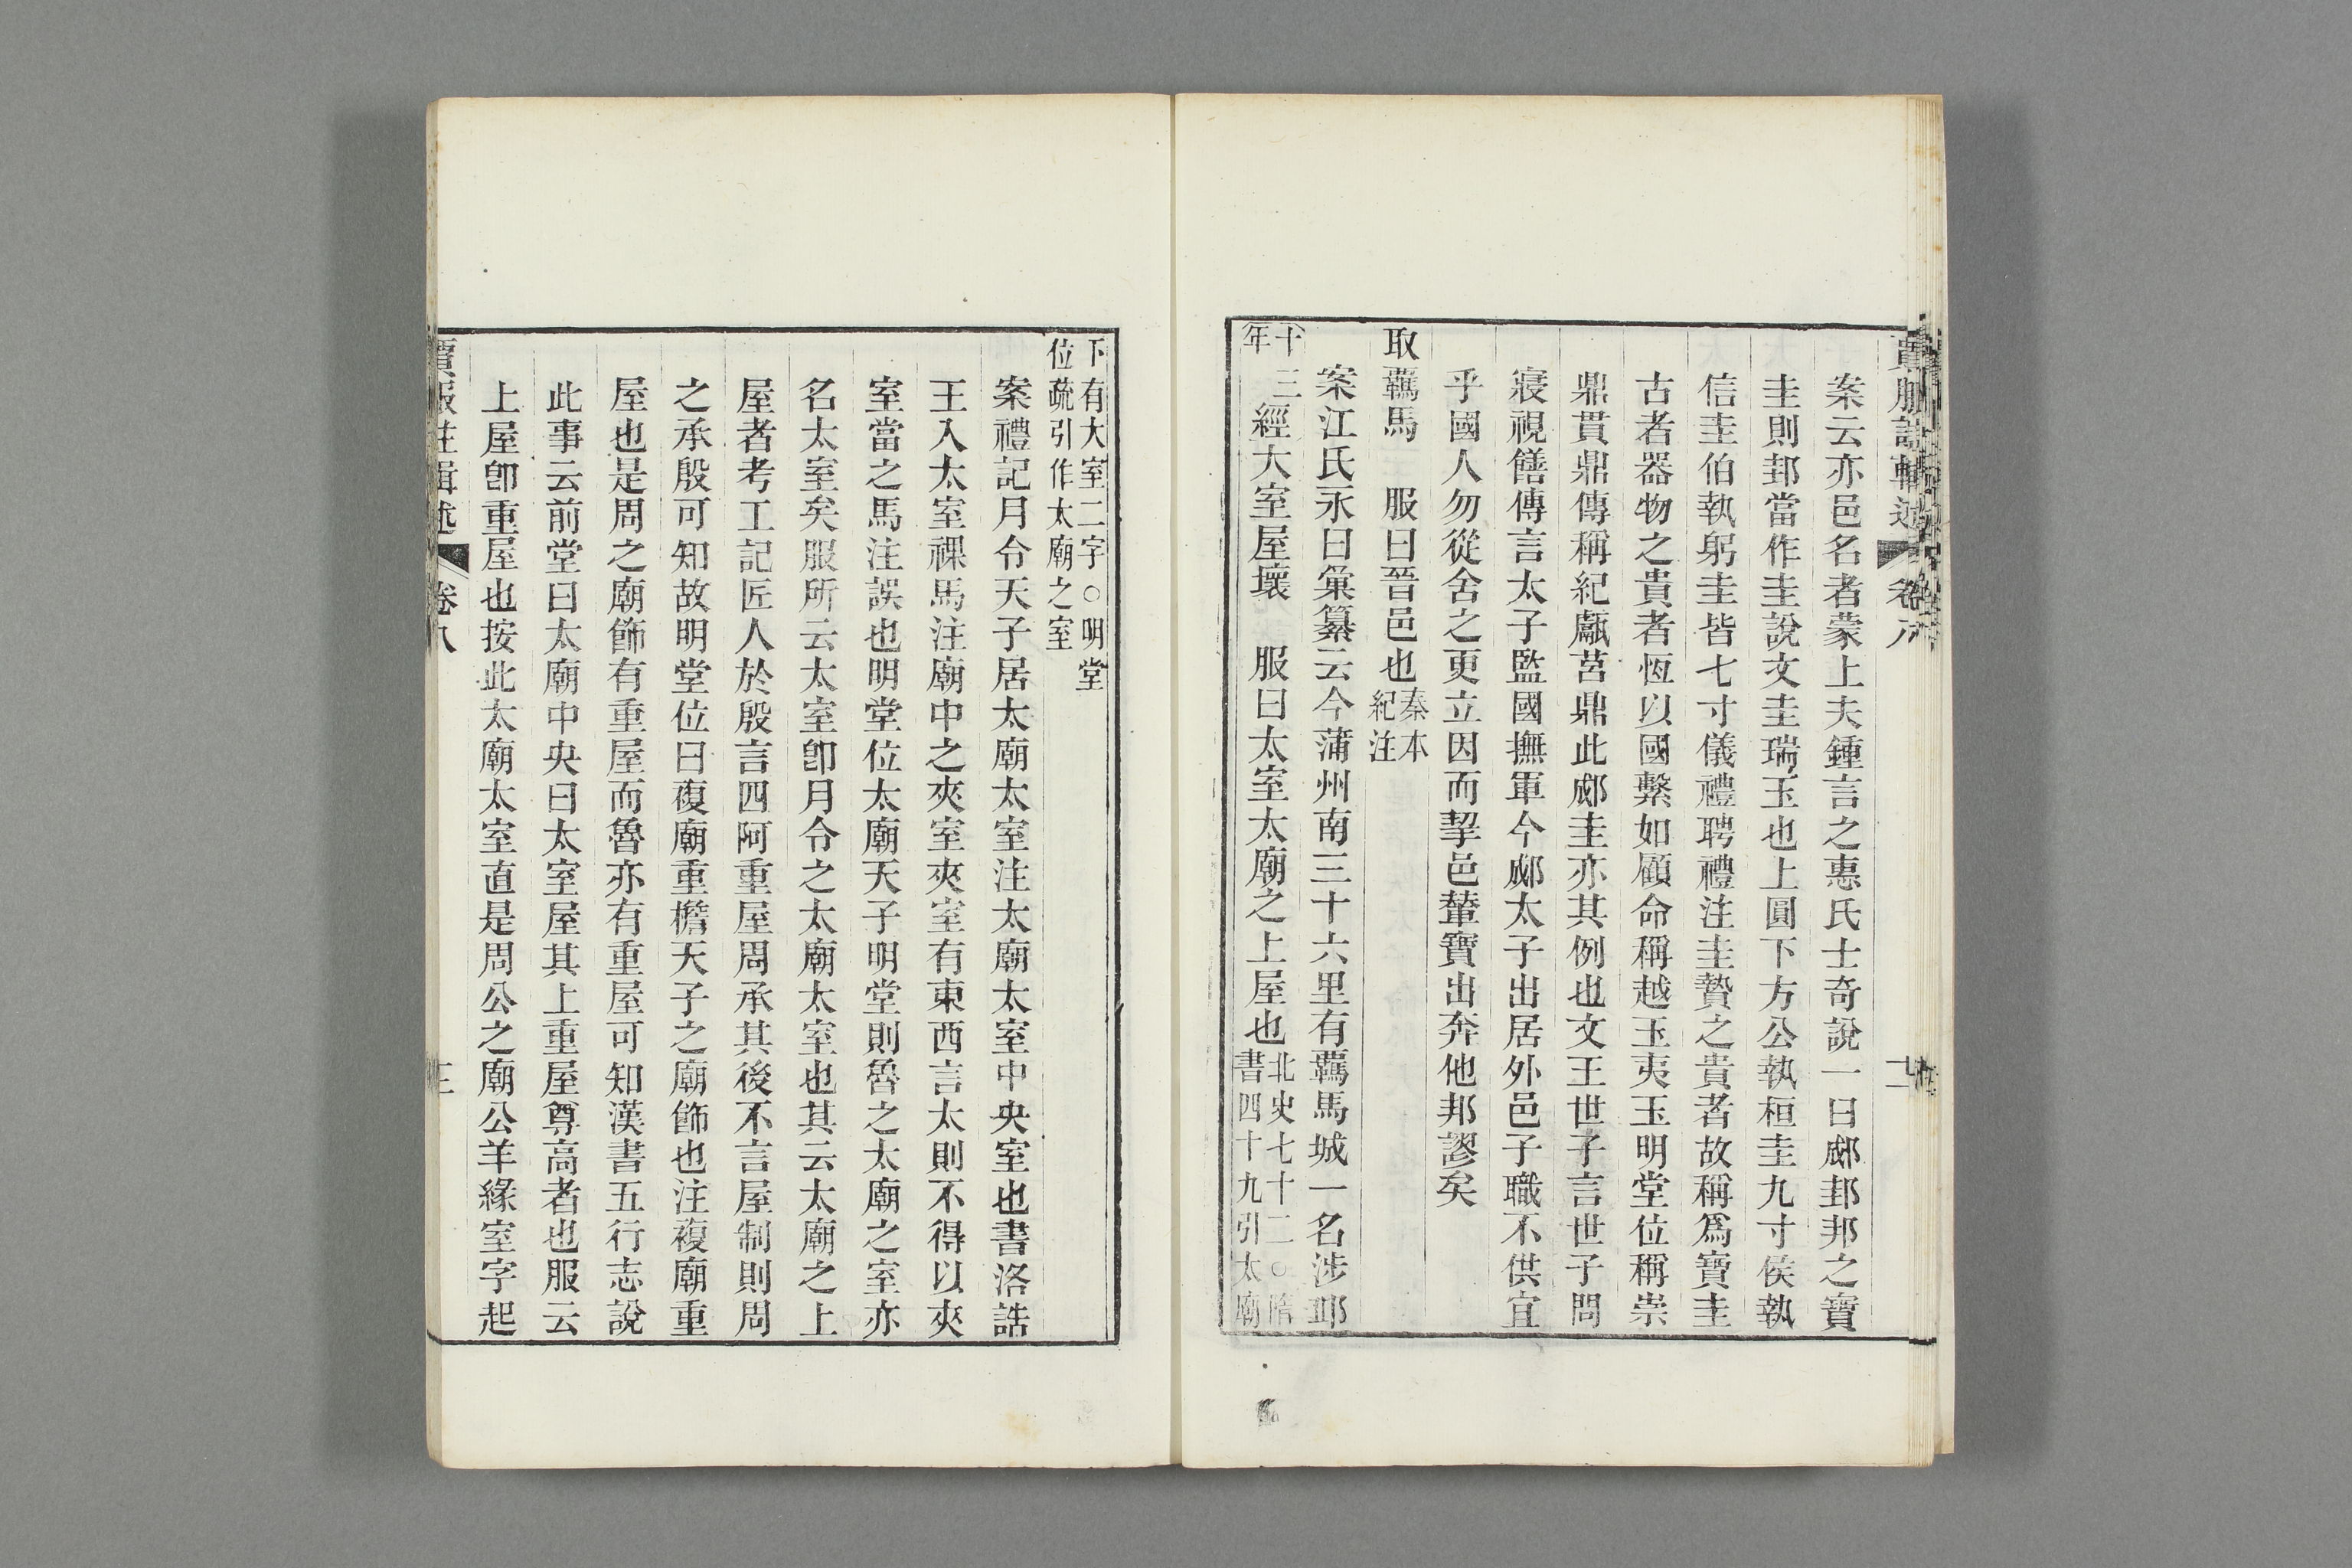 案云亦邑名者蒙上夫鍾言之惠氏士奇說一曰郕邽邦之寶
圭則邽當作圭說文圭瑞玉也上圓下方公執桓圭九寸侯執
信圭伯執躬圭皆七寸儀禮聘禮注圭贄之貴者故稱爲寶圭
古者器物之貴者恆以國繫如顧命稱越玉夷玉明堂位稱崇
鼎貫鼎傳稱紀甗莒鼎此郕圭亦其例也文王世子言世子問
寢視饍傳言太子監國撫軍今郕太子出居外邑子職不供宜
乎國人勿從舍之更立因而挈邑輦寶出奔他邦謬矣
取羈馬 服曰晉邑也秦本紀注
案江氏永曰彙纂云今蒲州南三十六里有羈馬城一名涉邱
十三年經大室屋壞 服曰太室太廟之上屋也北史七十二○隋書四十九引太廟
賈服註輯述 卷八
下有大室二字○明堂位疏引作太廟之室
案禮記月令天子居太廟太室注太廟太室中央室也書洛誥
王入太室祼馬注廟中之夾室夾室有東西言太則不得以夾
室當之馬注誤也明堂位太廟天子明堂則魯之太廟之室亦
名太室矣服所云太室卽月令之太廟太室也其云太廟之上
屋者考工記匠人於殷言四阿重屋周承其後不言屋制則周
之承殷可知故明堂位曰復廟重檐天子之廟飾也注複廟重
屋也是周之廟飾有重屋而魯亦有重屋可知漢書五行志說
此事云前堂曰太廟中央曰太室屋其上重屋尊高者也服云
上屋卽重屋也按此太廟太室直是周公之廟公羊緣室字起
賈服註輯述 卷八